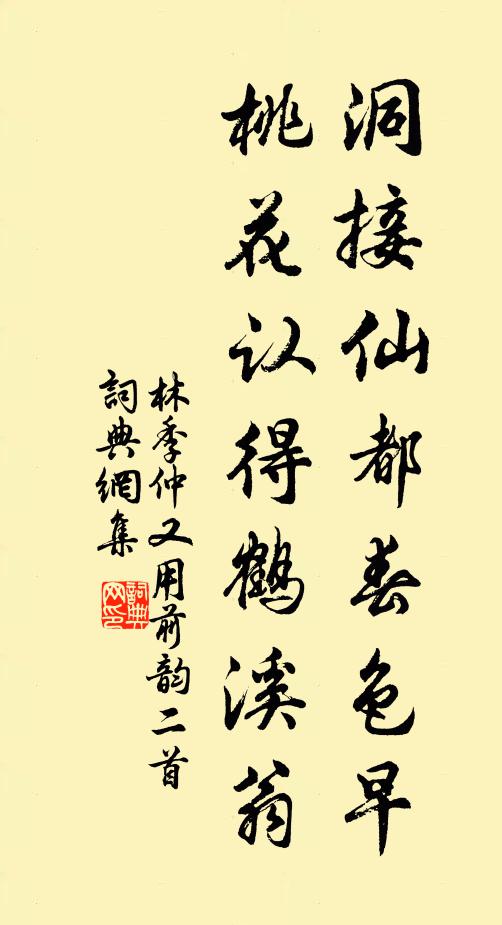 洞接仙都春色早
桃花认得鹤溪翁
林季仲又用前韵二首
詞典網集
詞典網印